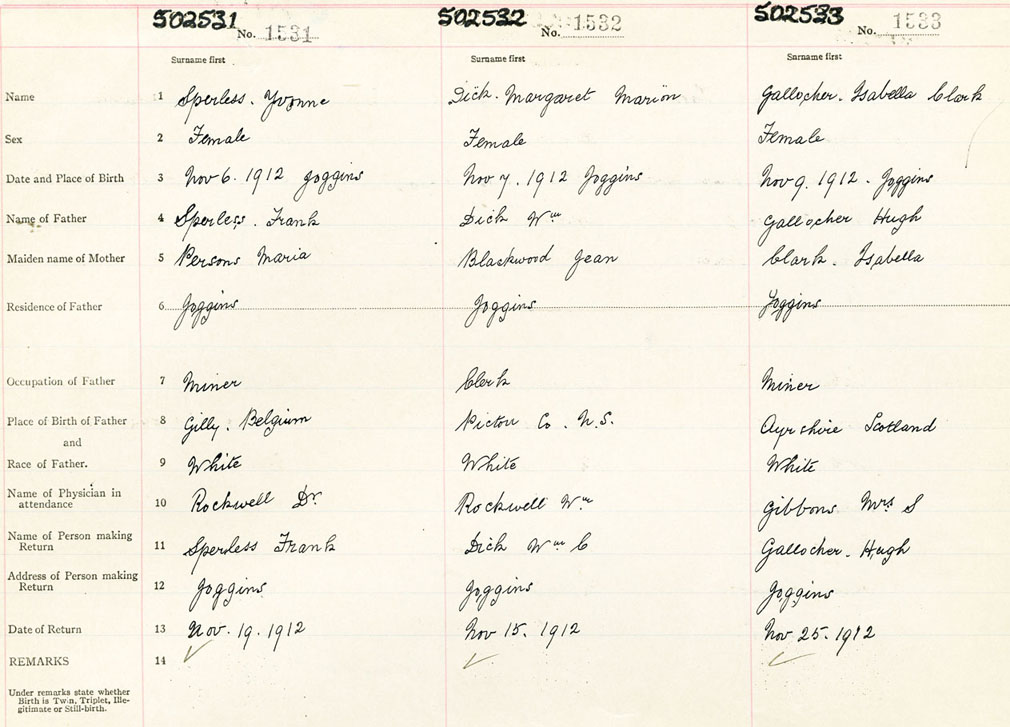 502531 No. 1531 502532 No. 1532 502533 No. 1533
Surname first Surname first Surname first
Name 1 Sperless. Yvonne Dick. Margaret Marion Gallocher. Isabella Clark
Sex 2 Female Female Female
Date and Place of Birth 3 Nov 6. 1912 Joggins Nov 7. 1912 Joggins Nov 9. 1912. Joggins
Name of Father 4 Sperless. Frank Dick Wm Gallocher Hugh
Maiden name of Mother 5 Persons Maria Blackwood Jean Clark. Isabella
Residence of Father 6 Joggins Joggins Joggins
Occupation of Father 7 Miner Clerk Miner
Place of Birth of Father 8 Gilly. Belgium Pictou Co. N.S. Ayrshire Scotland
and
Race of Father. 9 White White White
Name of Physician in
attendance 10 Rockwell Dr. Rockwell Wm Gibbons Mrs S
Name of Person making
Return 11 Sperless Frank Dick Wm C Gallocher. Hugh
Address of Person making
Return 12 Joggins Joggins Joggins
Date of Return 13 Nov. 19. 1912 Nov 15. 1912 Nov 25. 1912
REMARKS 14
Under remarks state whether
Birth is Twin, Triplet, Ille-
gitimate or Still-birth.